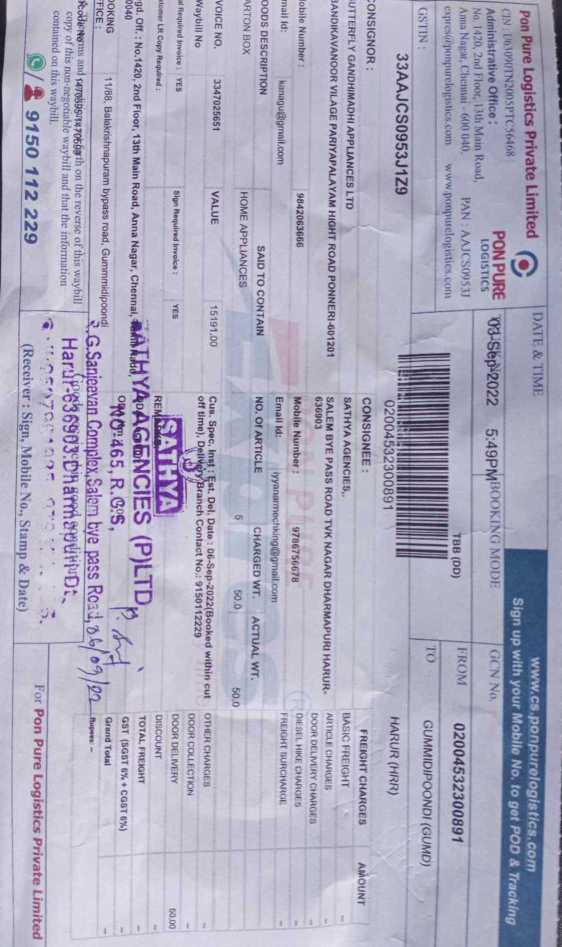 Pon Pure Logistics Private Limited
CIN : U63090TN2005PTC56468
Administrative Office :
No. 1420, 2nd Floor, 13th Main Road,
Anna Nagar, Chennai - 600 040.
PAN : AAJCS0953J
express@ponpurelogistics.com www.ponpurelogistics.com
PON PURE
LOGISTICS
GSTIN :
33AAJCS0953J1Z9
DATE & TIME
03-Sep-2022 5:49PM
BOOKING MODE
TBB (DD)
www.cs.ponpurelogistics.com
Sign up with your Mobile No. to get POD & Tracking
GCN No.
02004532300891
FROM
GUMMIDIPOONDI (GUMD)
TO
HARUR (HRR)
02004532300891
CONSIGNOR :
BUTTERFLY GANDHIMADHI APPLIANCES LTD
BANDIKAVANOOR VILAGE PARIYAPALAYAM HIGHT ROAD PONNERI-601201
Mobile Number : 9842063666
Email Id: kanagu@gmail.com
CONSIGNEE :
SATHYA AGENCIES,.
SALEM BYE PASS ROAD TVK NAGAR DHARMAPURI HARUR-
636903
Mobile Number : 9786756678
Email Id: iyyanarmechking@gmail.com
GOODS DESCRIPTION
SAID TO CONTAIN
NO. Of ARTICLE
CHARGED WT.
ACTUAL WT.
CARTON BOX
HOME APPLIANCES
5
50.0
50.0
INVOICE NO.
3347025651
VALUE
15191.00
Waybill No
Cus. Spec. Inst : Est. Del. Date : 06-Sep-2022(Booked within cut
off time), Delivery Branch Contact No.: 9150112229
Required Invoice : YES
Sign Required Invoice : YES
Customer LR Copy Required :
REMARKS
Regd. Off. : No.1420, 2nd Floor, 13th Main Road, Anna Nagar, Chennai,
BOOKING
OFFICE : 11/88, Balakrishnapuram bypass road, Gummmidipoondi
forth on the reverse of this waybill
copy of this non-negotiable waybill and that the information
contained on this waybill.
9150 112 229
(Receiver : Sign, Mobile No., Stamp & Date)
SATHYA
SATHYA AGENCIES (P)LTD
NO:465, R.G.S,
S.G.Sanjeevan Complex,Salem bye pass Road,
Harur-636903.Dharmapuri Dt.
06/09/22
FREIGHT CHARGES
AMOUNT
BASIC FREIGHT
ARTICLE CHARGES
DOOR DELIVERY CHARGES
DIESEL HIKE CHARGES
FREIGHT SURCHARGE
OTHER CHARGES
DOOR COLLECTION
DOOR DELIVERY 50.00
DISCOUNT
TOTAL FREIGHT
GST (SGST 6% + CGST 6%)
Grand Total
Rupees: --
For Pon Pure Logistics Private Limited